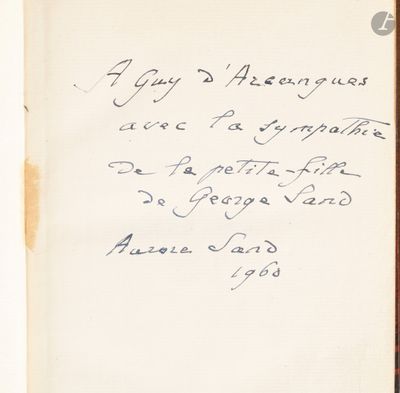 A Guy d'Arcangues
avec la sympathie
de la petite-fille
de George Sand
Aurore Sand
1960